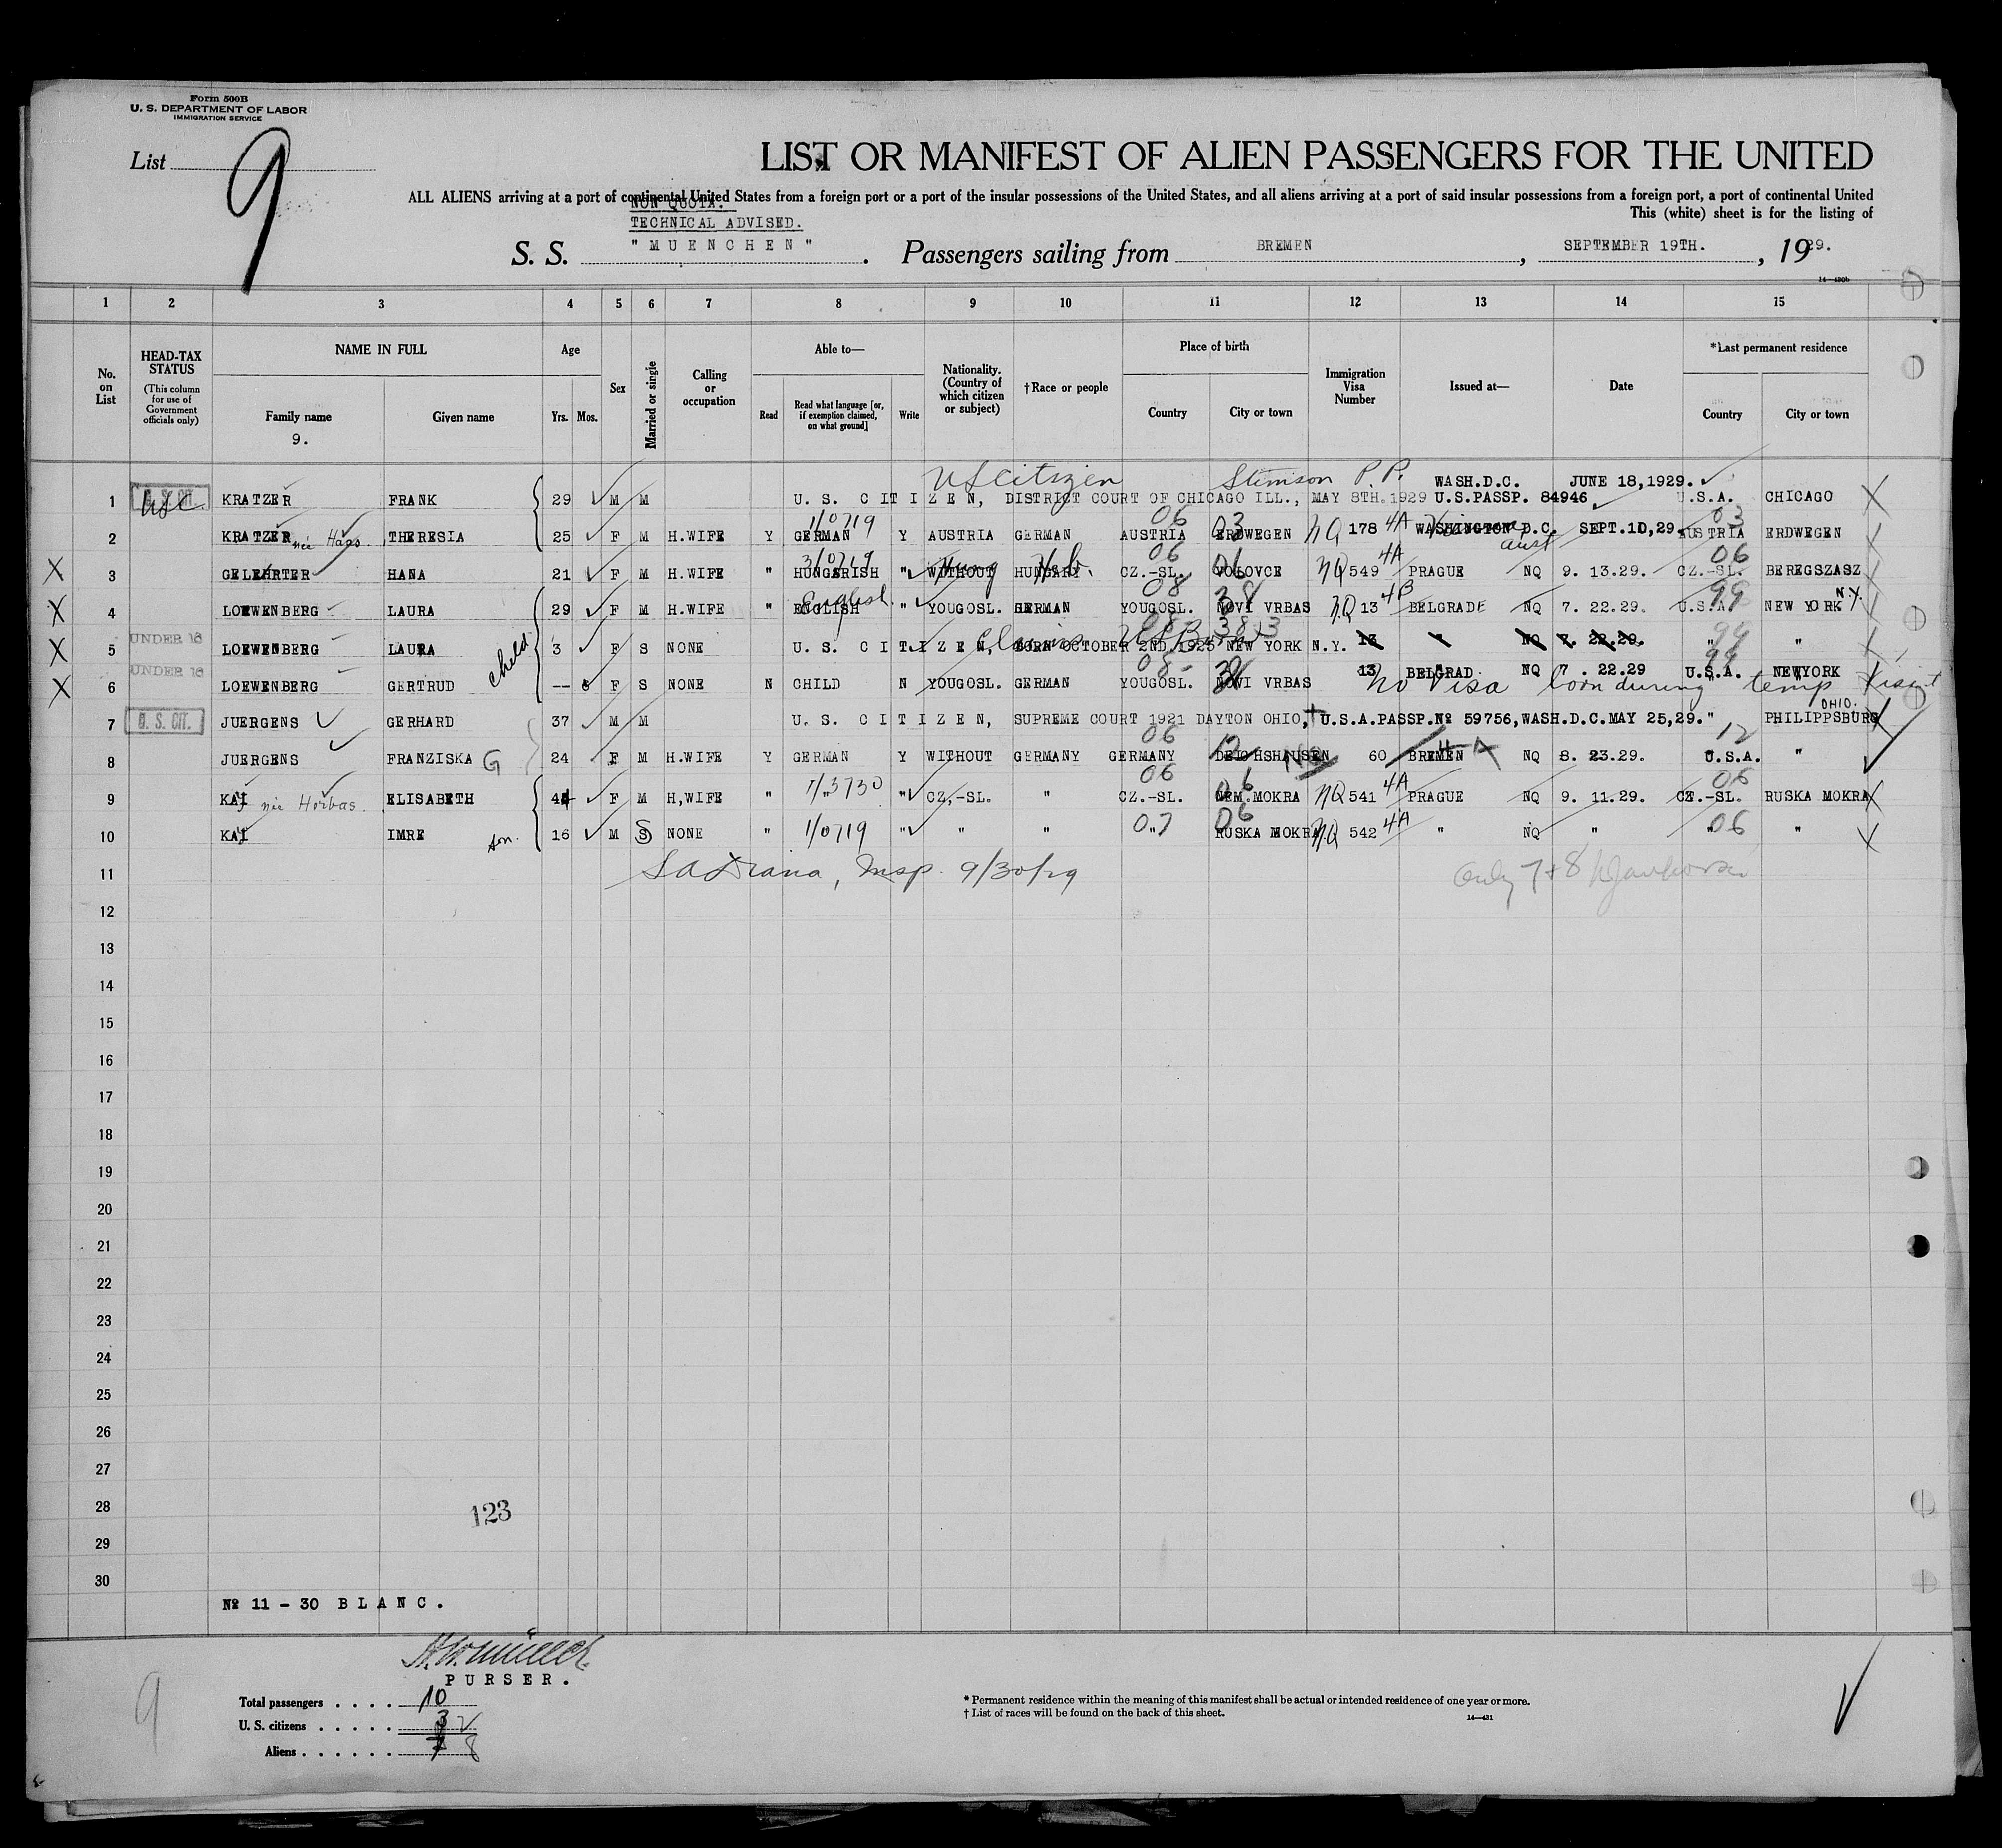 Form 500B
U. S. DEPARTMENT OF LABOR
IMMIGRATION SERVICE
List 9
LIST OR MANIFEST OF ALIEN PASSENGERS FOR THE UNITED
ALL ALIENS arriving at a port of continental United States from a foreign port or a port of the insular possessions of the United States, and all aliens arriving at a port of said insular possessions from a foreign port, a port of continental United
NON QUOTA.
This (white) sheet is for the listing of
TECHNICAL ADVISED.
S. S. "MUENCHEN". Passengers sailing from BREMEN, SEPTEMBER 19TH., 1929.
14—430b
1 2 3 4 5 6 7 8 9 10 11 12 13 14 15
No. on List
HEAD-TAX STATUS (This column for use of Government officials only)
NAME IN FULL
Family name
Given name
9.
Age
Yrs. Mos.
Sex
Married or single
Calling or occupation
Able to—
Read
Read what language [or, if exemption claimed, on what ground]
Write
Nationality. (Country of which citizen or subject)
†Race or people
Place of birth
Country
City or town
Immigration Visa Number
Issued at—
Date
*Last permanent residence
Country
City or town
US citizen Stimson P.P. WASH.D.C. JUNE 18,1929.
1 U.S. CIT. KRATZER FRANK 29 M M U. S. CITIZEN, DISTRICT COURT OF CHICAGO ILL., MAY 8TH.1929 U.S.PASSP. 84946 U.S.A. CHICAGO
1/0719 06 03 03
2 KRATZER née THERESIA 25 F M H.WIFE Y GERMAN Y AUSTRIA GERMAN AUSTRIA ERDWEGEN NQ 178 4A WASHINGTON D.C. SEPT.10,29 AUSTRIA ERDWEGEN
3/0719 06 06 06
3 GELEHRTER HANA 21 F M H.WIFE " HUNGARISH " WITHOUT Hung HUNGARY Heb. CZ.-SL. VOLOVCE NQ 549 4A PRAGUE NQ 9. 13.29. CZ.-SL. BEREGSZASZ
English 08 38 99
4 LOEWENBERG LAURA 29 F M H.WIFE " ENGLISH " YOUGOSL. GERMAN YOUGOSL. NOVI VRBAS NQ 13 4B BELGRADE NQ 7. 22.29. U.S.A. NEW YORK N.Y.
5 UNDER 16 LOEWENBERG LAURA child 3 F S NONE U. S. CITIZEN, BORN OCTOBER 2ND,1925 NEW YORK N.Y. 13 " NQ 7. 22.29. " "
6 UNDER 16 LOEWENBERG GERTRUD -- 6 F S NONE N CHILD N YOUGOSL. GERMAN YOUGOSL. NOVI VRBAS 13 BELGRAD NQ 7. 22.29 U.S.A. NEWYORK
No Visa born during temp visit
7 U. S. CIT. JUERGENS GERHARD 37 M M U. S. CITIZEN, SUPREME COURT 1921 DAYTON OHIO, U.S.A.PASSP.№ 59756,WASH.D.C.MAY 25,29. " PHILIPPSBURG OHIO.
06 12 12
8 JUERGENS FRANZISKA G 24 F M H.WIFE Y GERMAN Y WITHOUT GERMANY GERMANY 60 BREMEN 4A NQ 8. 23.29. U.S.A. "
06 06 06
9 KAJ née Horbas. ELISABETH 44 F M H,WIFE " " " CZ,-SL. " CZ.-SL. NEM.MOKRA NQ 541 4A PRAGUE NQ 9. 11.29. CZ.-SL. RUSKA MOKRA
10 KAJ IMRE son. 16 M S NONE " 1/0719 " " " " RUSKA MOKRA NQ 542 4A " NQ " " 06 "
11 Insp. 9/30/29 Only 7+8
12
13
14
15
16
17
18
19
20
21
22
23
24
25
26
27
28 123
29
30
№ 11 - 30 BLANC.
PURSER.
9
Total passengers . . . . 10
U. S. citizens . . . . . 3 2
Aliens . . . . . . 7 8
* Permanent residence within the meaning of this manifest shall be actual or intended residence of one year or more.
† List of races will be found on the back of this sheet.
14—431